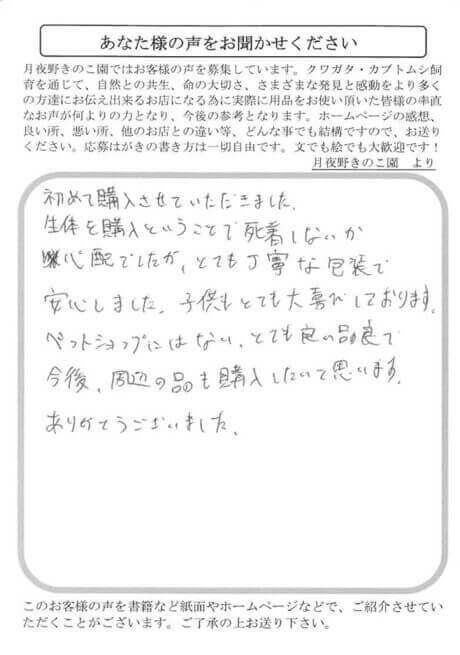 あなた様の声をお聞かせください
月夜野きのこ園ではお客様の声を募集しています。クワガタ・カブトムシ飼
育を通じて、自然との共生、命の大切さ、さまざまな発見と感動をより多く
の方達にお伝え出来るお店になる為に実際に用品をお使い頂いた皆様の率直
なお声が何よりの力となり、今後の参考となります。ホームページの感想、
良い所、悪い所、他のお店との違い等、どんな事でも結構ですので、お送り
ください。応募はがきの書き方は一切自由です。文でも絵でも大歓迎です！
月夜野きのこ園　より
初めて購入させていただきました。
生体を購入ということで死着しないか
心配でしたが、とても丁寧な包装で
安心しました。子供もとても大喜びしております。
ペットショップにはない、とても良い品良で
今後、周辺の品も購入したいと思います。
ありがとうございました。
このお客様の声を書籍など紙面やホームページなどで、ご紹介させてい
ただくことがございます。ご了承の上お送り下さい。